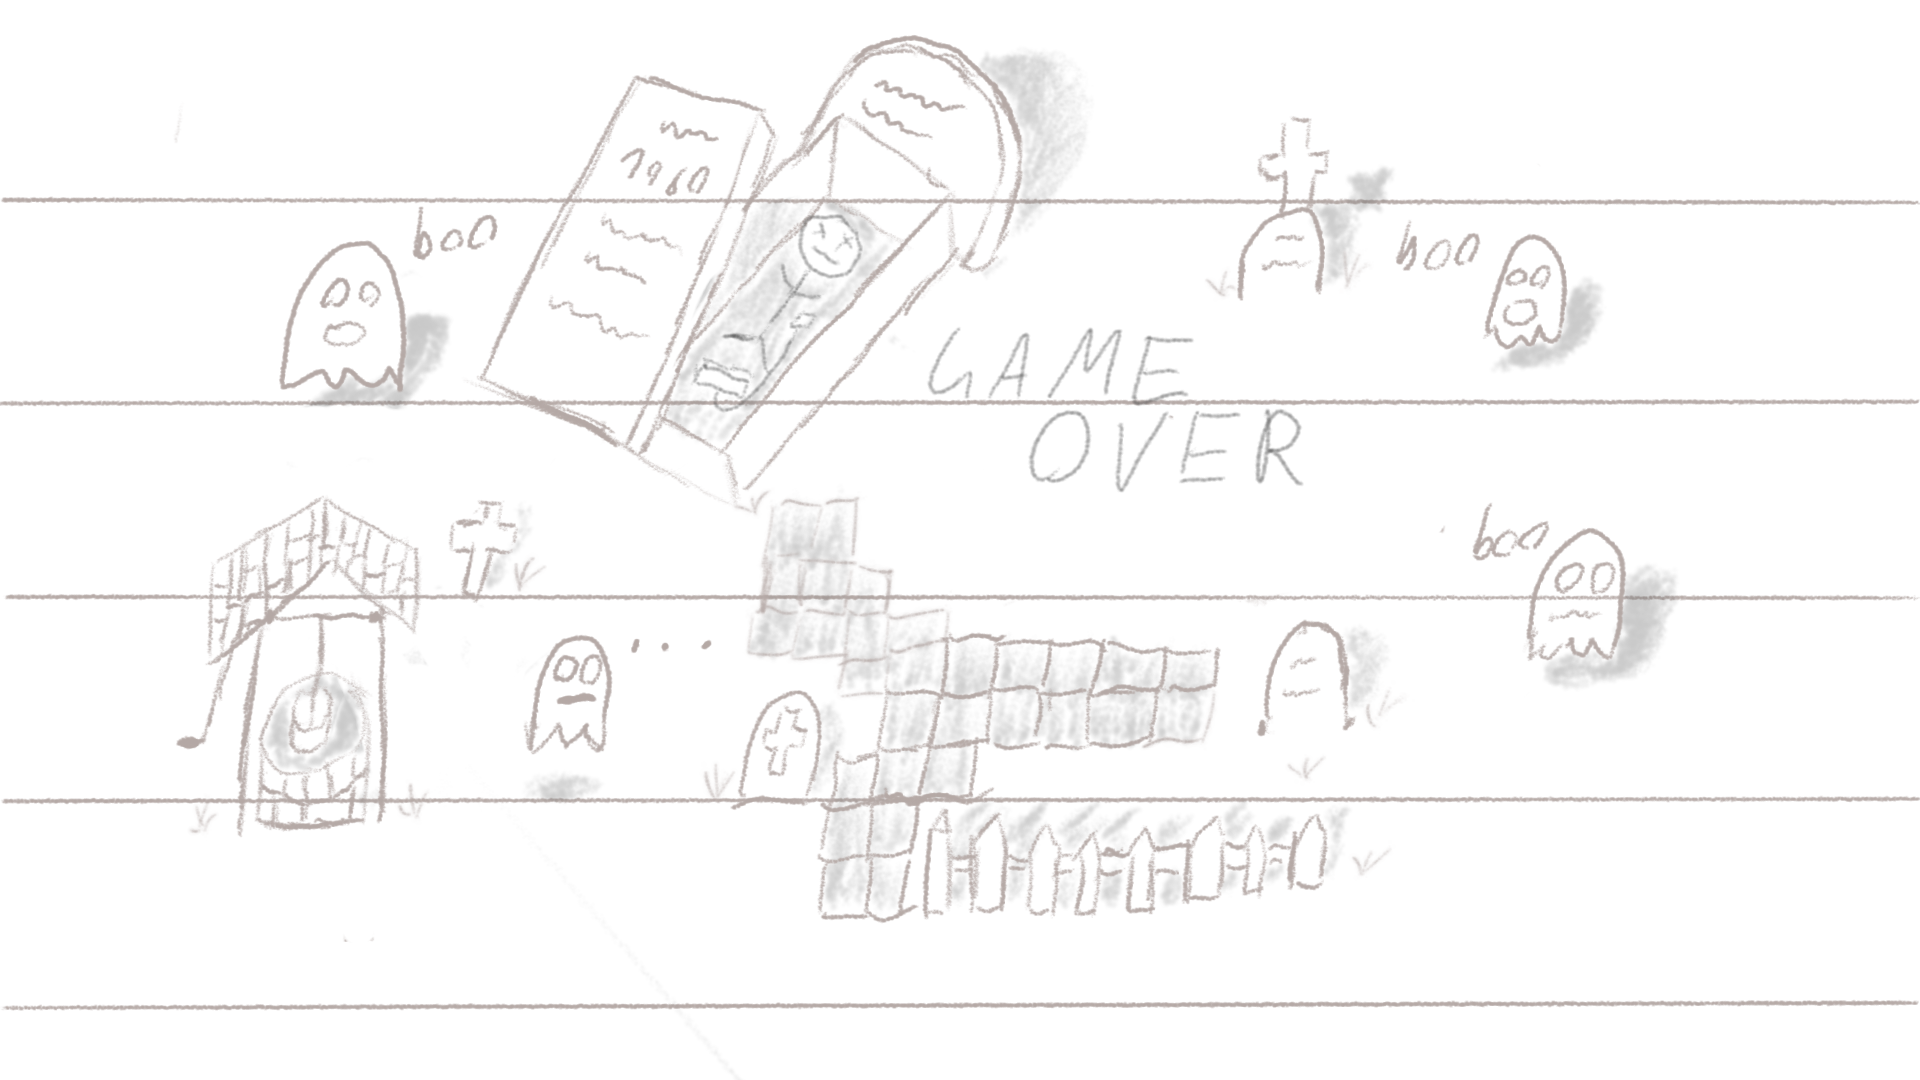 1960
boo
boo
GAME
OVER
boo
...